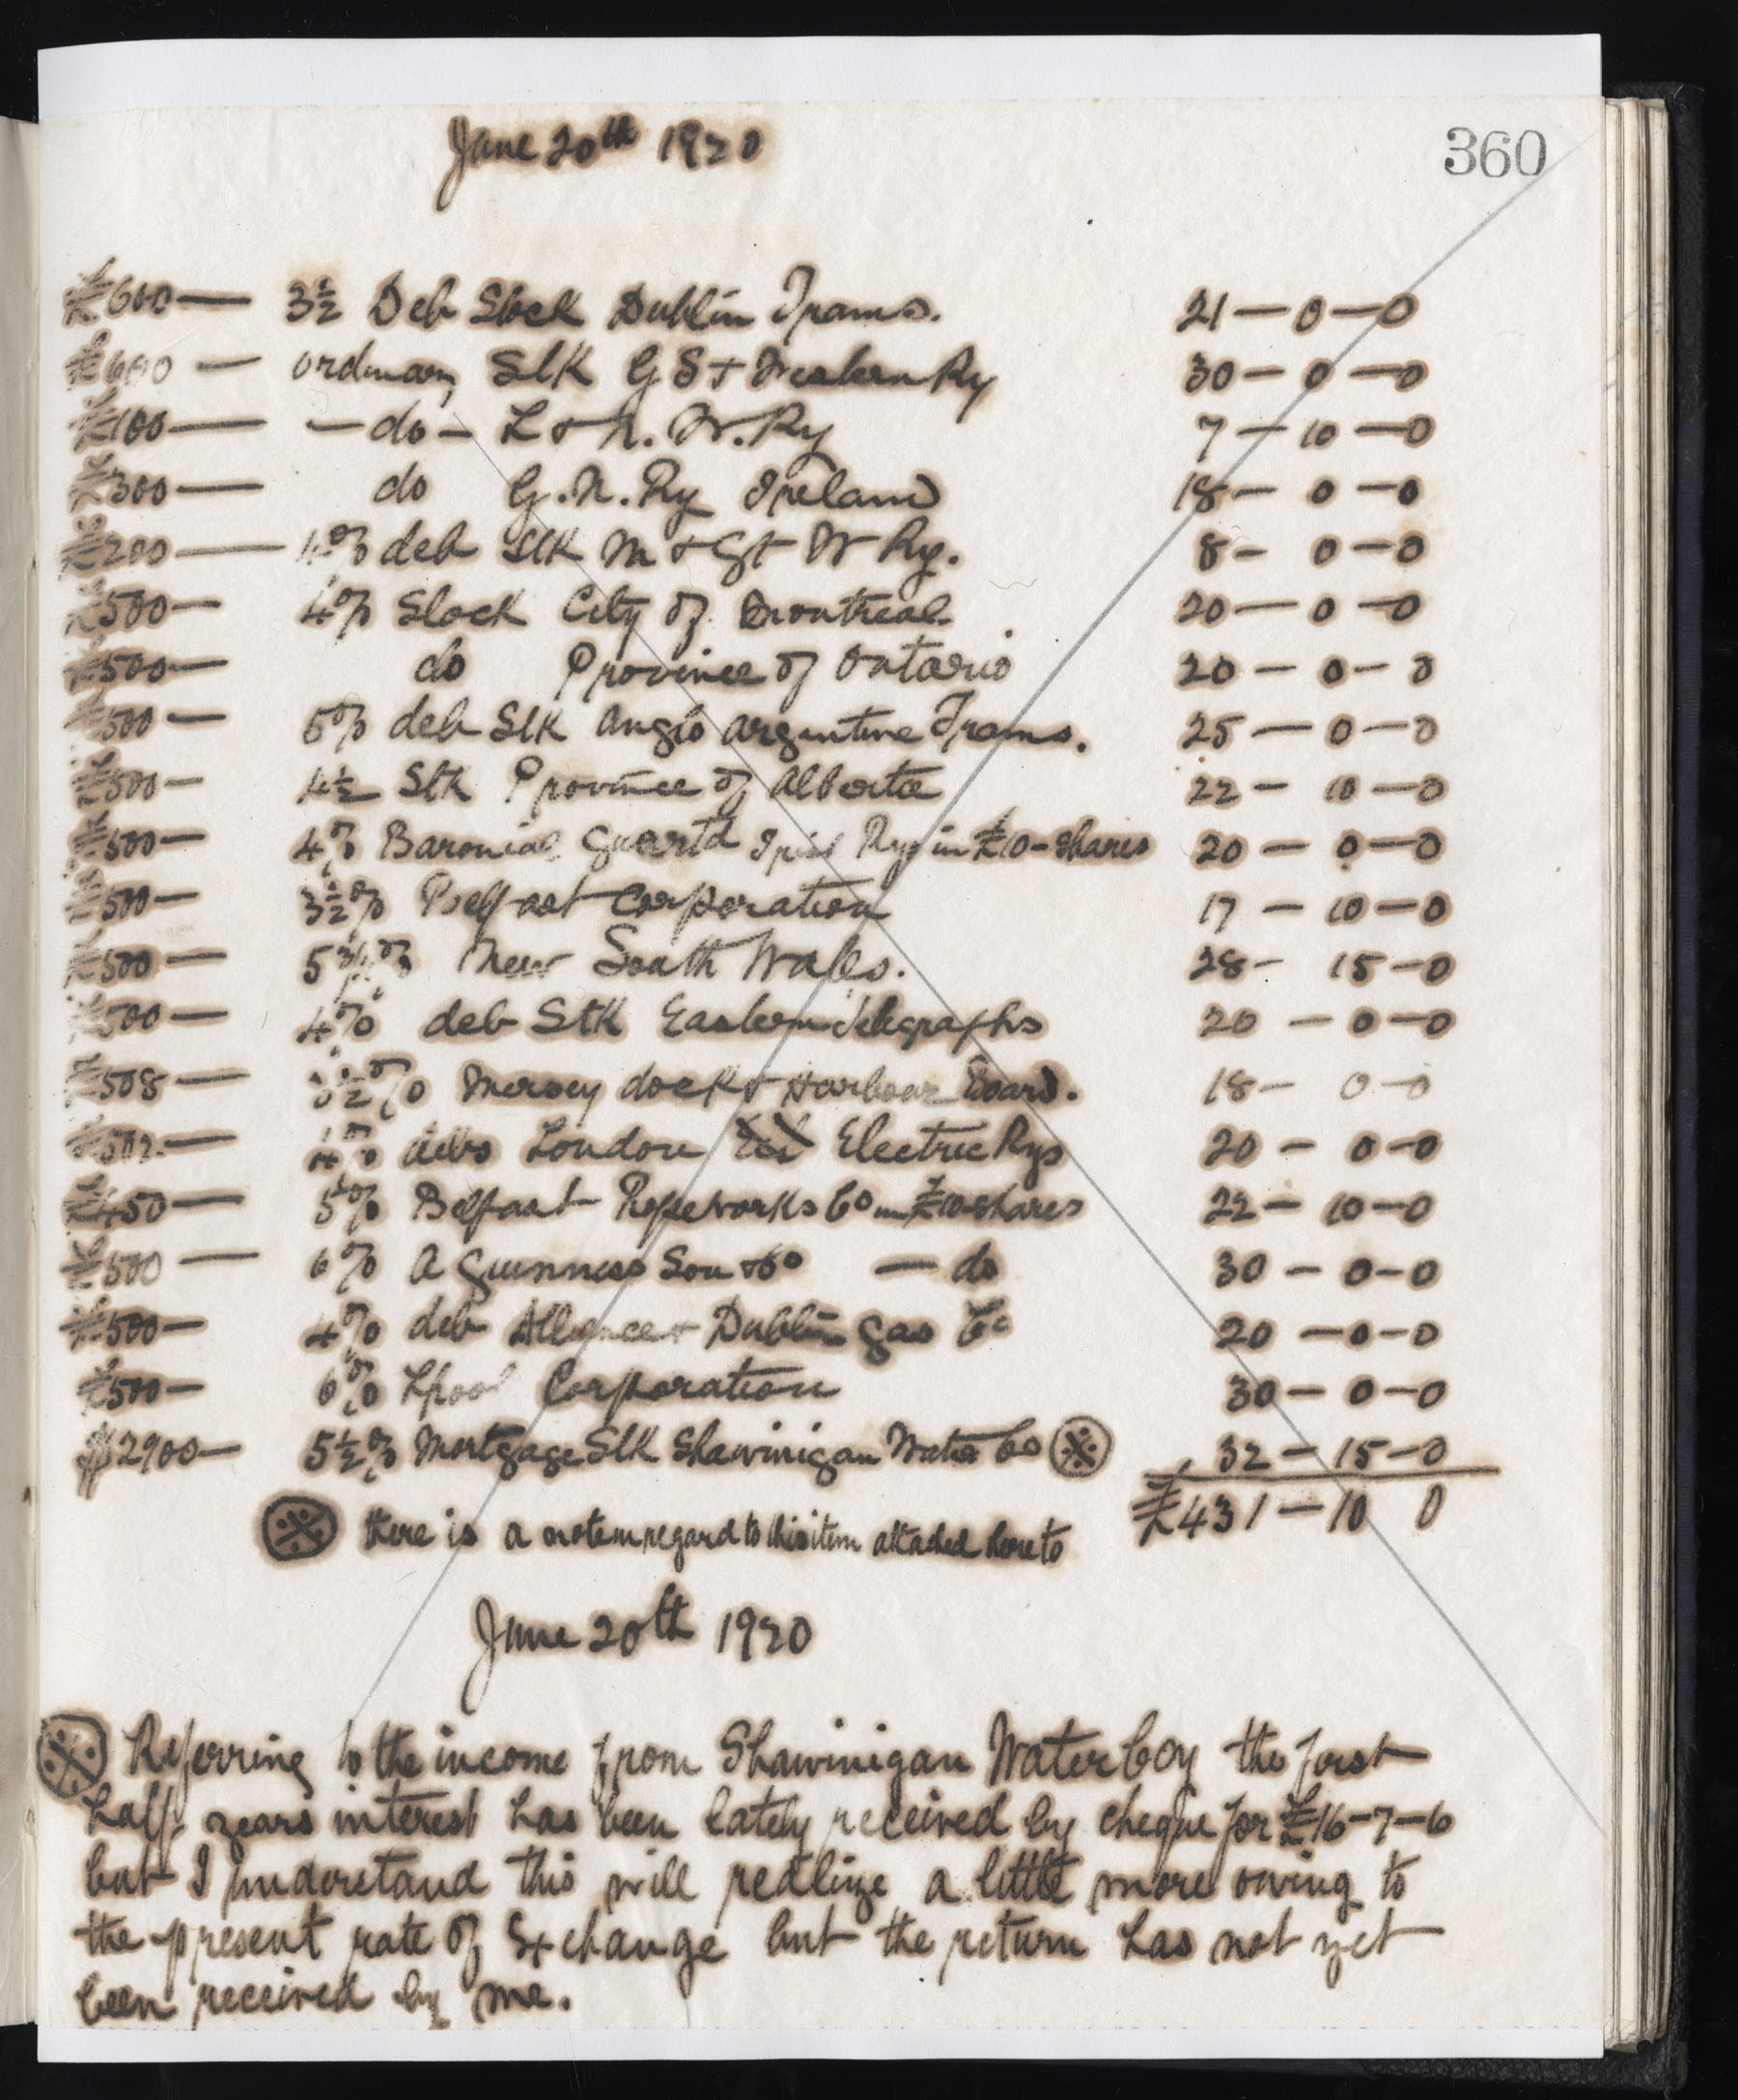 360
June 20th 1920
£600 — 3½ Deb Stock Dublin Trams. 21 — 0 — 0
£600 — ordinary Stk G S & Western Ry 30 — 0 — 0
£100 — — do — L & N. W. Ry 7 — 10 — 0
£300 — do G. N. Ry Ireland 18 — 0 — 0
£200 — 4% deb Stk M & Gt W Ry. 8 — 0 — 0
£500 — 4% Stock City of Montreal 20 — 0 — 0
£500 — do Province of Ontario 20 — 0 — 0
£500 — 5% deb Stk Anglo Argentine Trams. 25 — 0 — 0
£500 — 4½ Stk Province of Alberta 22 — 10 — 0
£500 — 4% Baronial Guartd Irish Rys in £10 - Shares 20 — 0 — 0
£500 — 3½% Belfast Corporation 17 — 10 — 0
£500 — 5¾% New South Wales. 28 — 15 — 0
£500 — 4% deb Stk Eastern Telegraphs 20 — 0 — 0
£508 — 3½% Mersey dock & Harbour Board. 18 — 0 — 0
£502 — 4% debs London Electric Rys 20 — 0 — 0
£450 — 5% Belfast Ropeworks Co in £10 shares 22 — 10 — 0
£500 — 6% A Guinness Son & Co — do 30 — 0 — 0
£500 — 4% deb Alliance & Dublin Gas Co 20 — 0 — 0
£500 — 6% Lpool Corporation 30 — 0 — 0
$2900 — 5½% Mortgage Stk Shawinigan Water Co ※ 32 — 15 — 0
£431 — 10 0
※ there is a note in regard to this item attached hereto
June 20th 1920
※ Referring to the income from Shawinigan Water Coy the first
half years interest has been lately received by cheque for £16-7-6
but I understand this will realize a little more owing to
the present rate of Exchange but the return has not yet
been received by me.